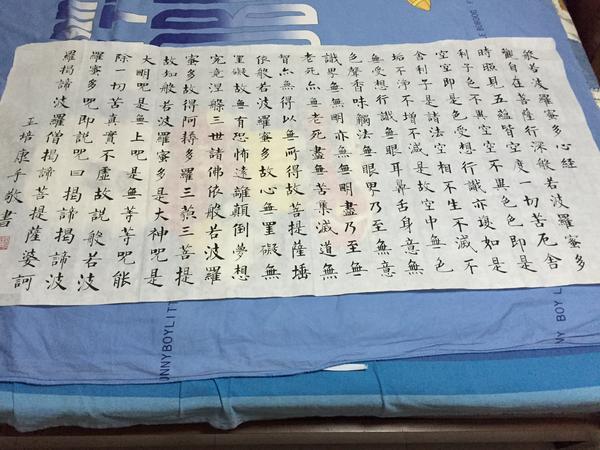 般若波羅蜜多心經
觀自在菩薩行深般若波羅蜜多
時照見五蘊皆空度一切苦厄舍
利子色不異空空不異色色即是
空空即是色受想行識亦復如是
舍利子是諸法空相不生不滅不
垢不淨不增不減是故空中無色
無受想行識無眼耳鼻舌身意無
色聲香味觸法無眼界乃至無意
識界無無明亦無無明盡乃至無
老死亦無老死盡無苦集滅道無
智亦無得以無所得故菩提薩埵
依般若波羅蜜多故心無罣礙無
罣礙故無有恐怖遠離顛倒夢想
究竟涅槃三世諸佛依般若波羅
蜜多故得阿耨多羅三藐三菩提
故知般若波羅蜜多是大神咒是
大明咒是無上咒是無等等咒能
除一切苦真實不虛故說般若波
羅蜜多咒即說咒曰揭諦揭諦波
羅揭諦波羅僧揭諦菩提薩婆訶
王培康手敬書
UNNYBOYLITT
NY BOY LIT